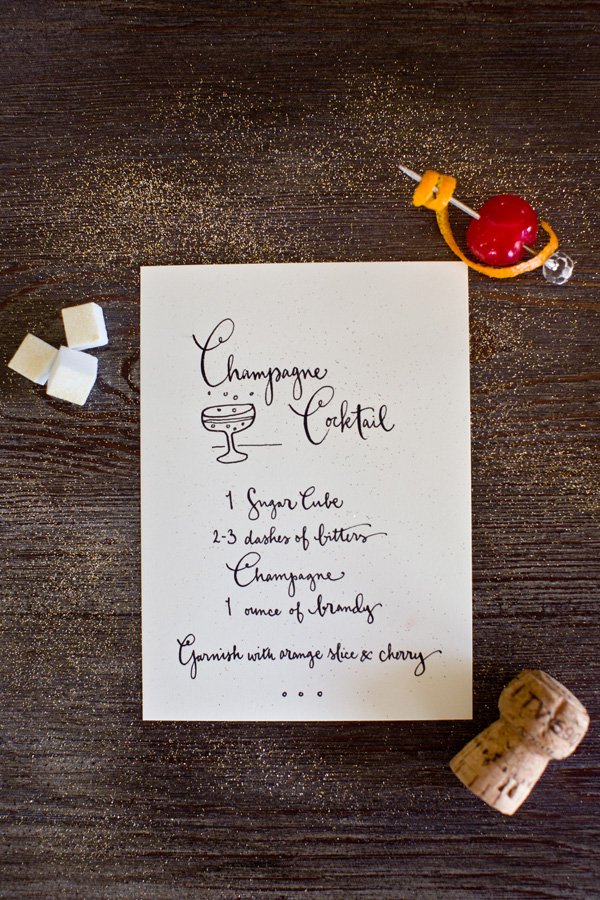 Champagne
Cocktail
1 Sugar Cube
2-3 dashes of bitters
Champagne
1 ounce of brandy
Garnish with orange slice & cherry